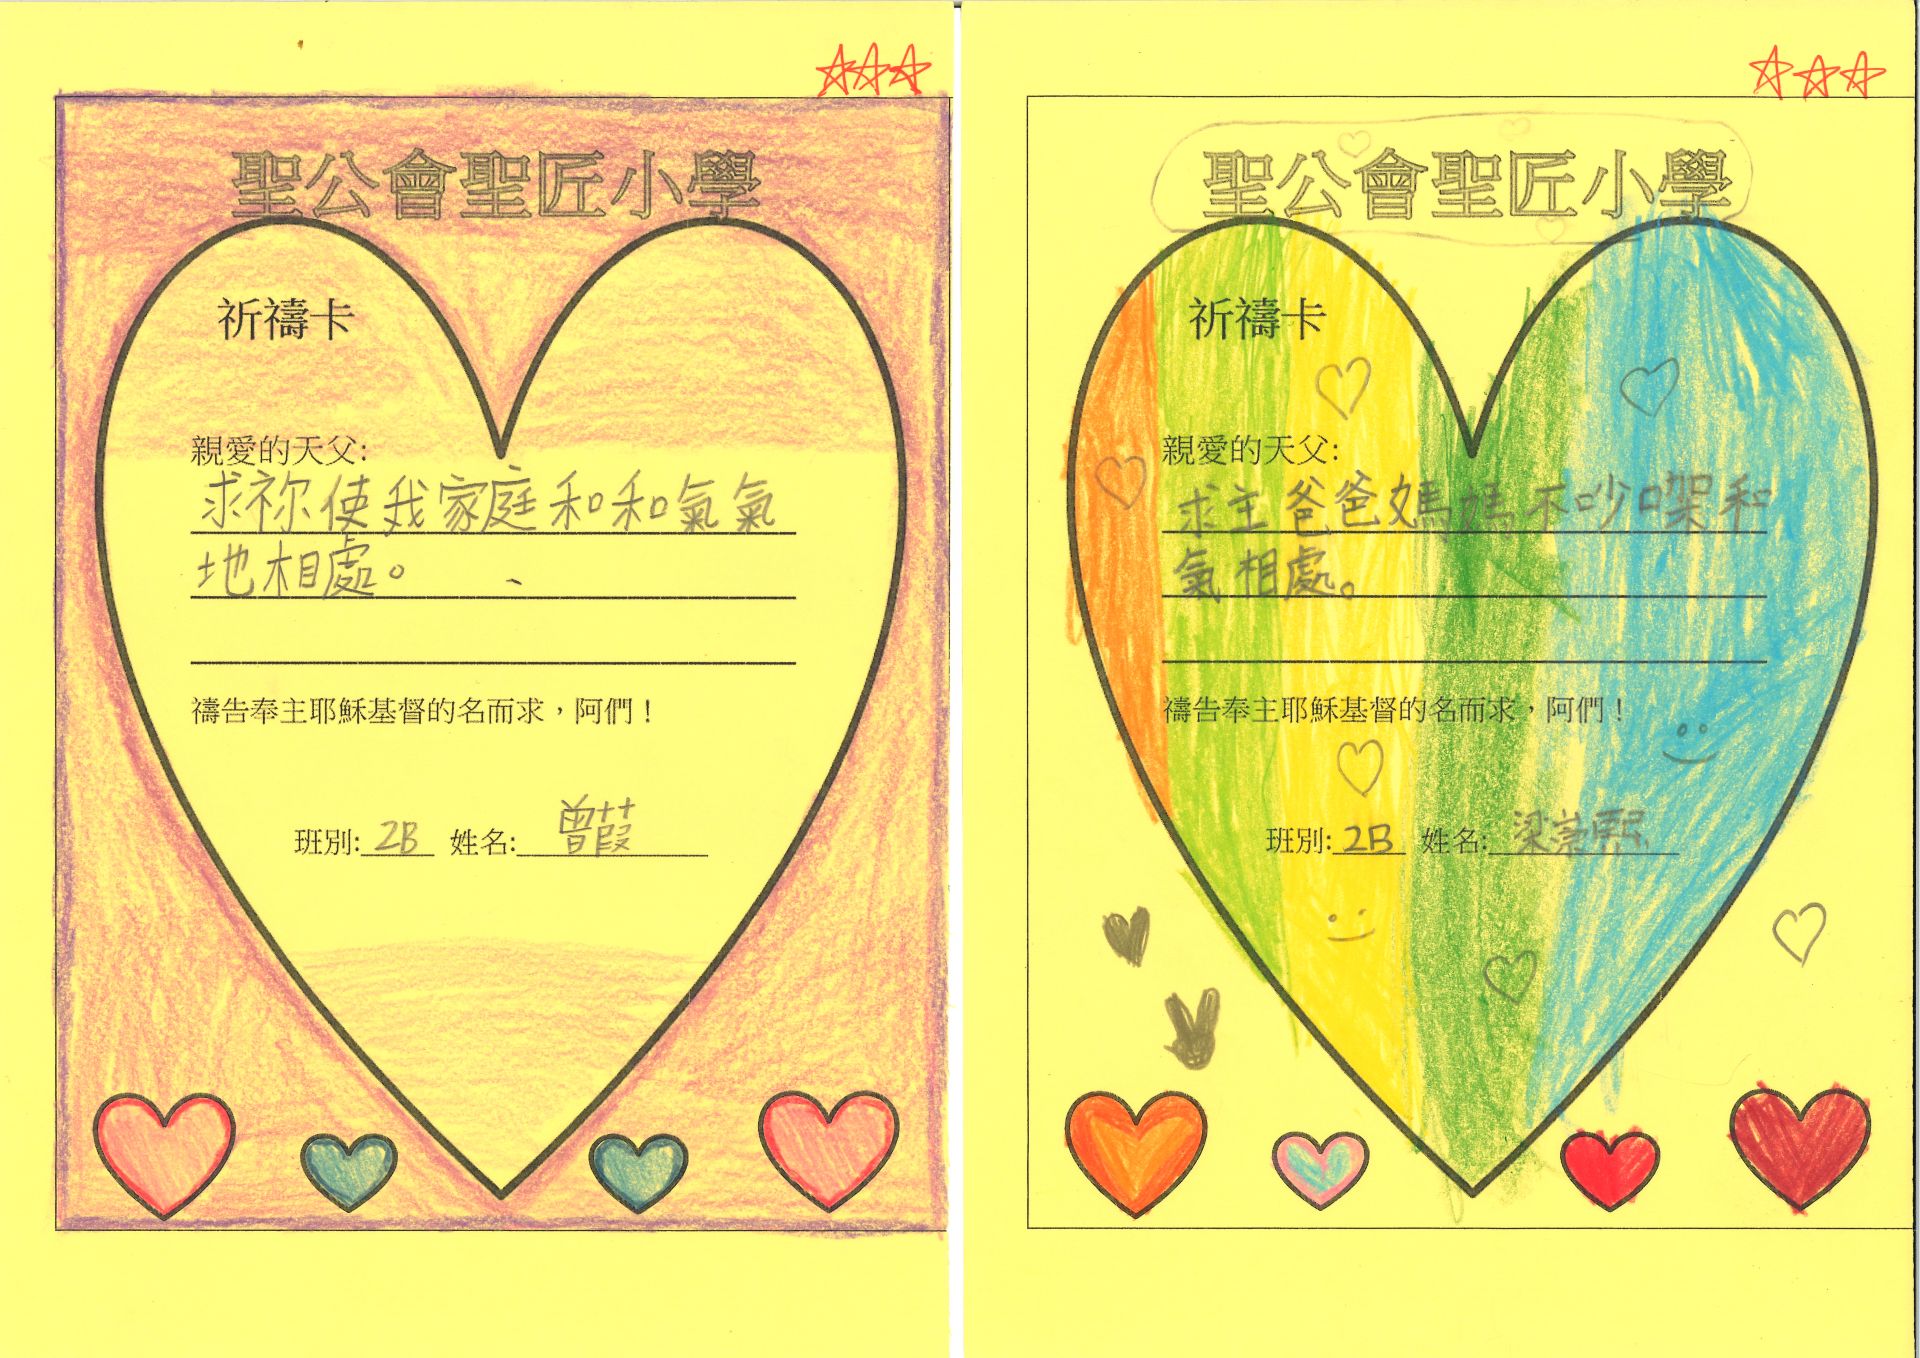 聖公會聖匠小學
祈禱卡
親愛的天父:
求祢使我家庭和和氣氣
地相處。
禱告奉主耶穌基督的名而求，阿們！
班別: 2B 姓名: 曾葭
聖公會聖匠小學
祈禱卡
親愛的天父:
求主爸爸媽媽不吵㗎和
氣相處。
禱告奉主耶穌基督的名而求，阿們！
班別: 2B 姓名: 梁崇熙